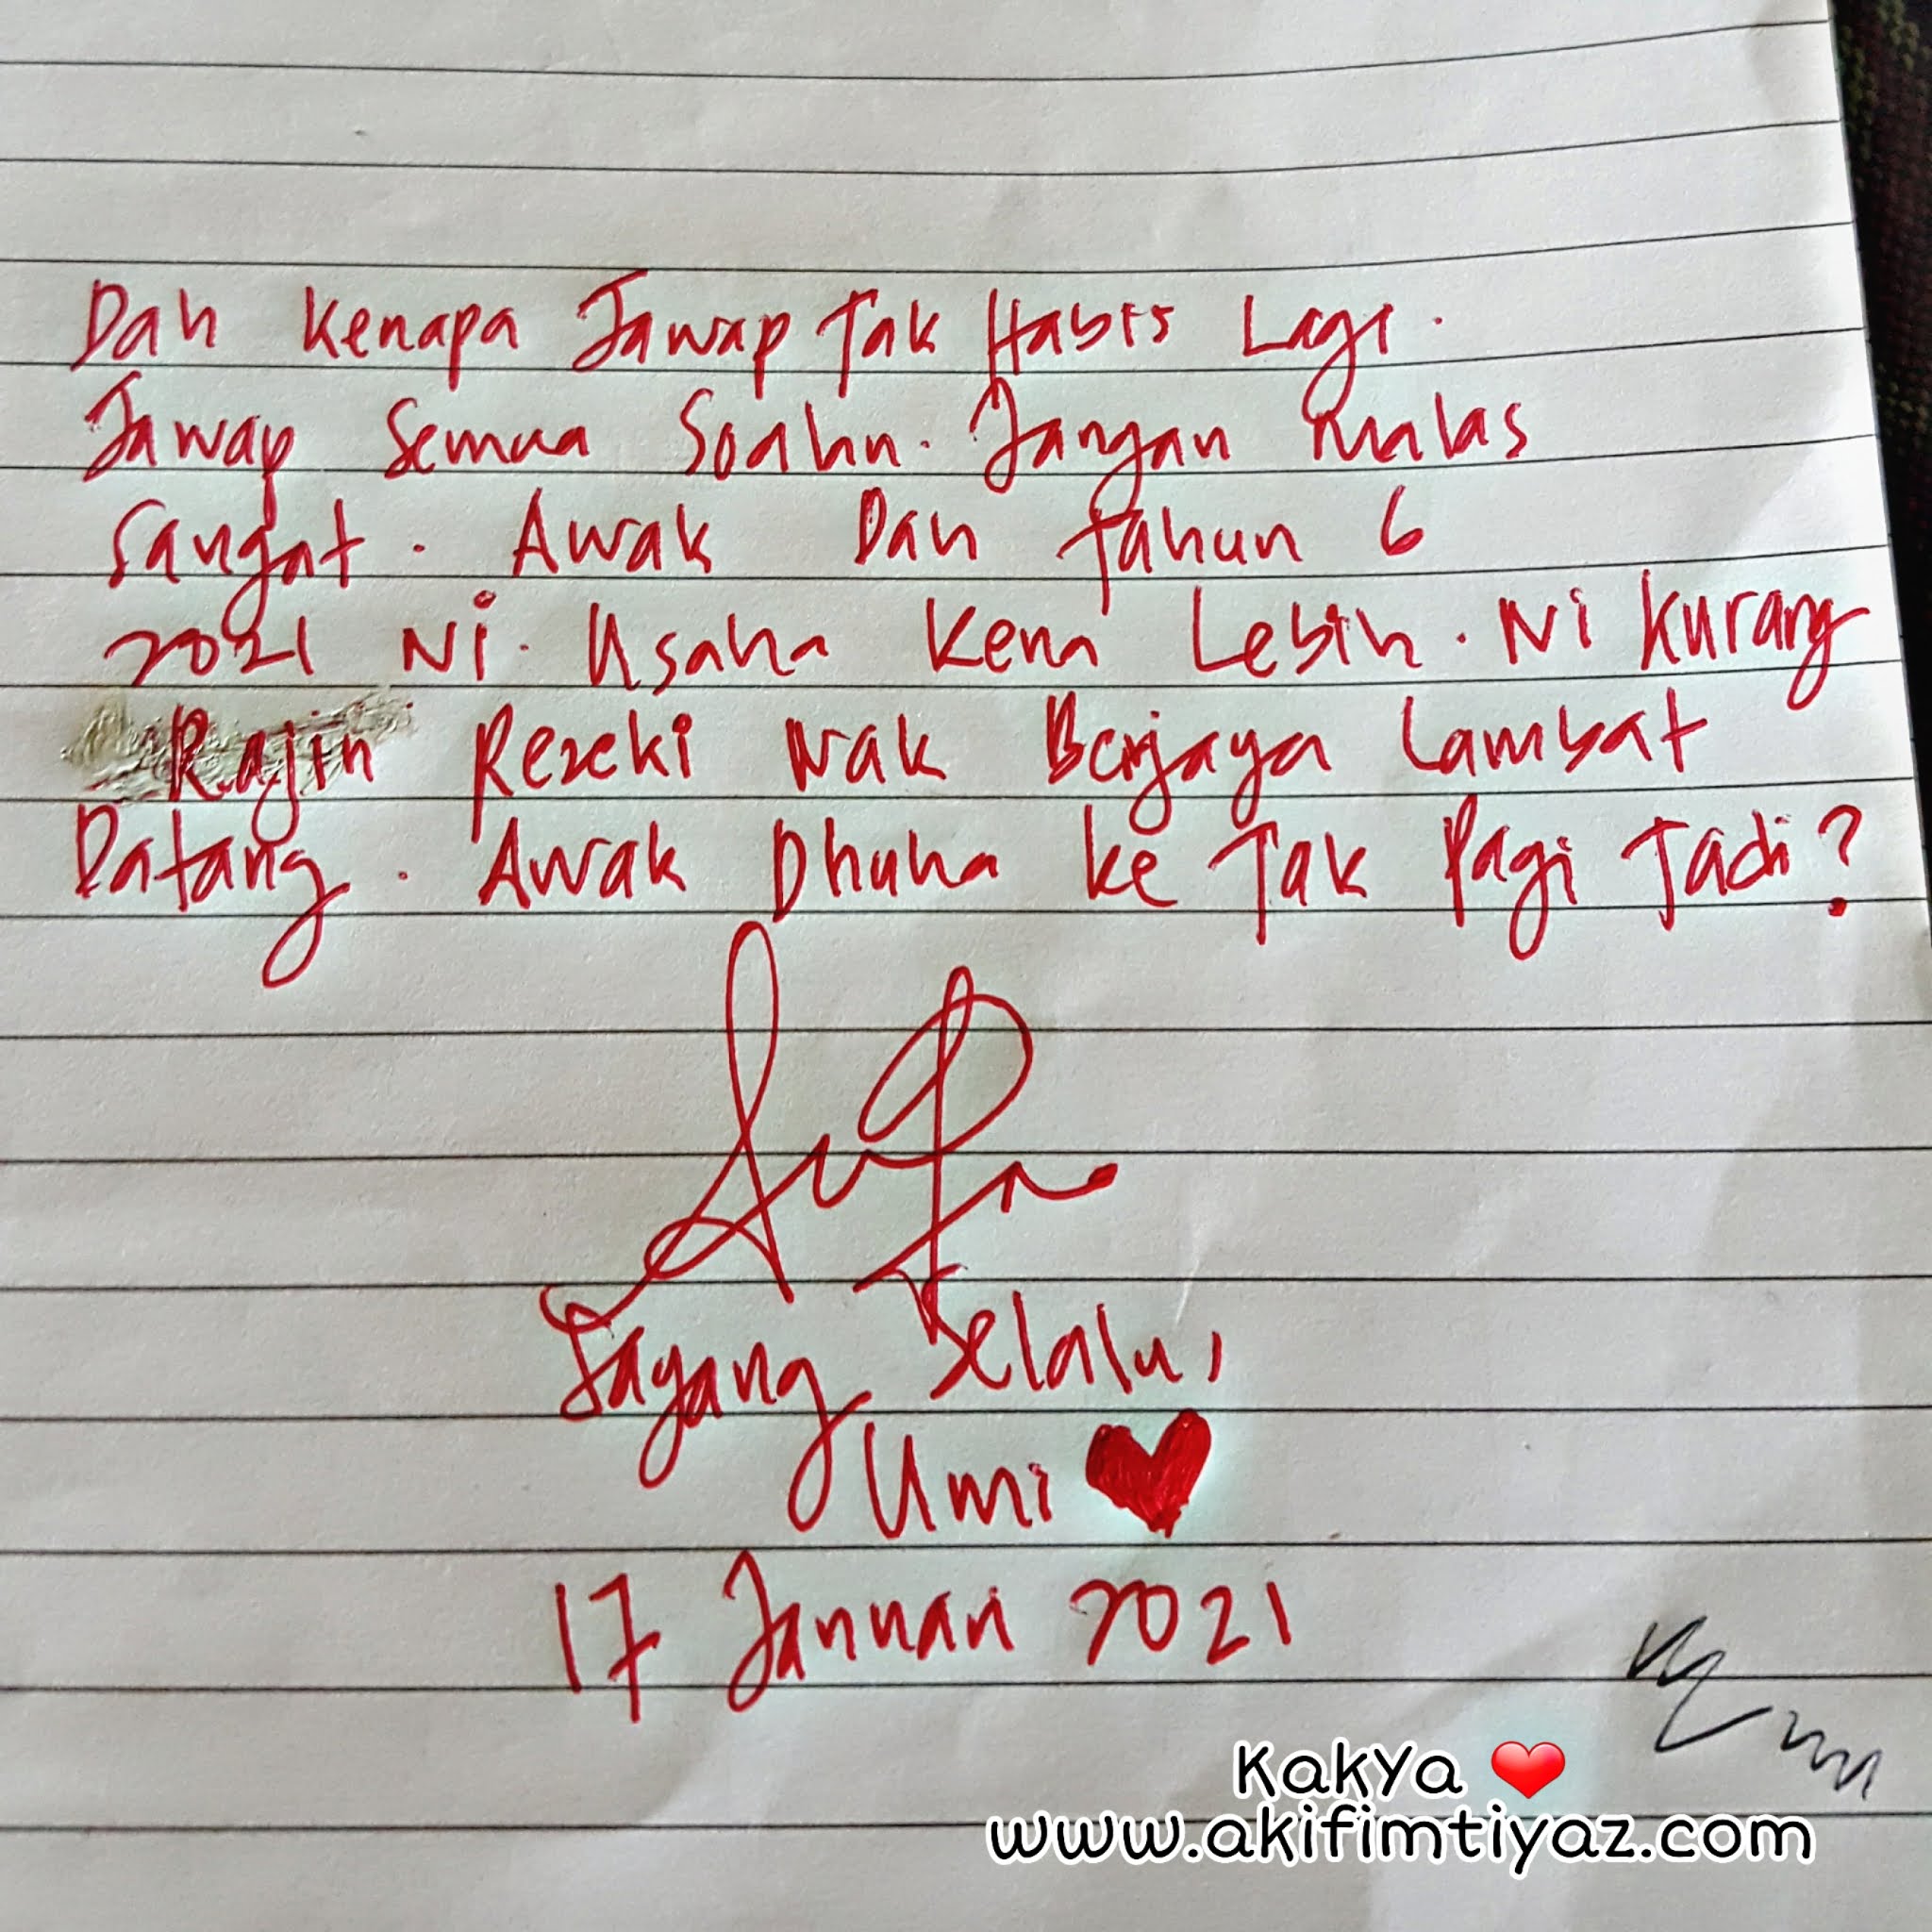 Dah Kenapa Jawap Tak Habis Lagi.
Jawap Semua Soalan. Jangan Malas
Sangat. Awak Dah Tahun 6
2021 Ni. Usaha Kena Lebih. Ni Kurang
Rajin Rezeki Nak Berjaya Lambat
Datang. Awak Dhuha ke Tak Pagi Tadi?
Sayang Selalu,
Umi ❤
17 Januari 2021
KakYa ❤
www.akifimtiyaz.com